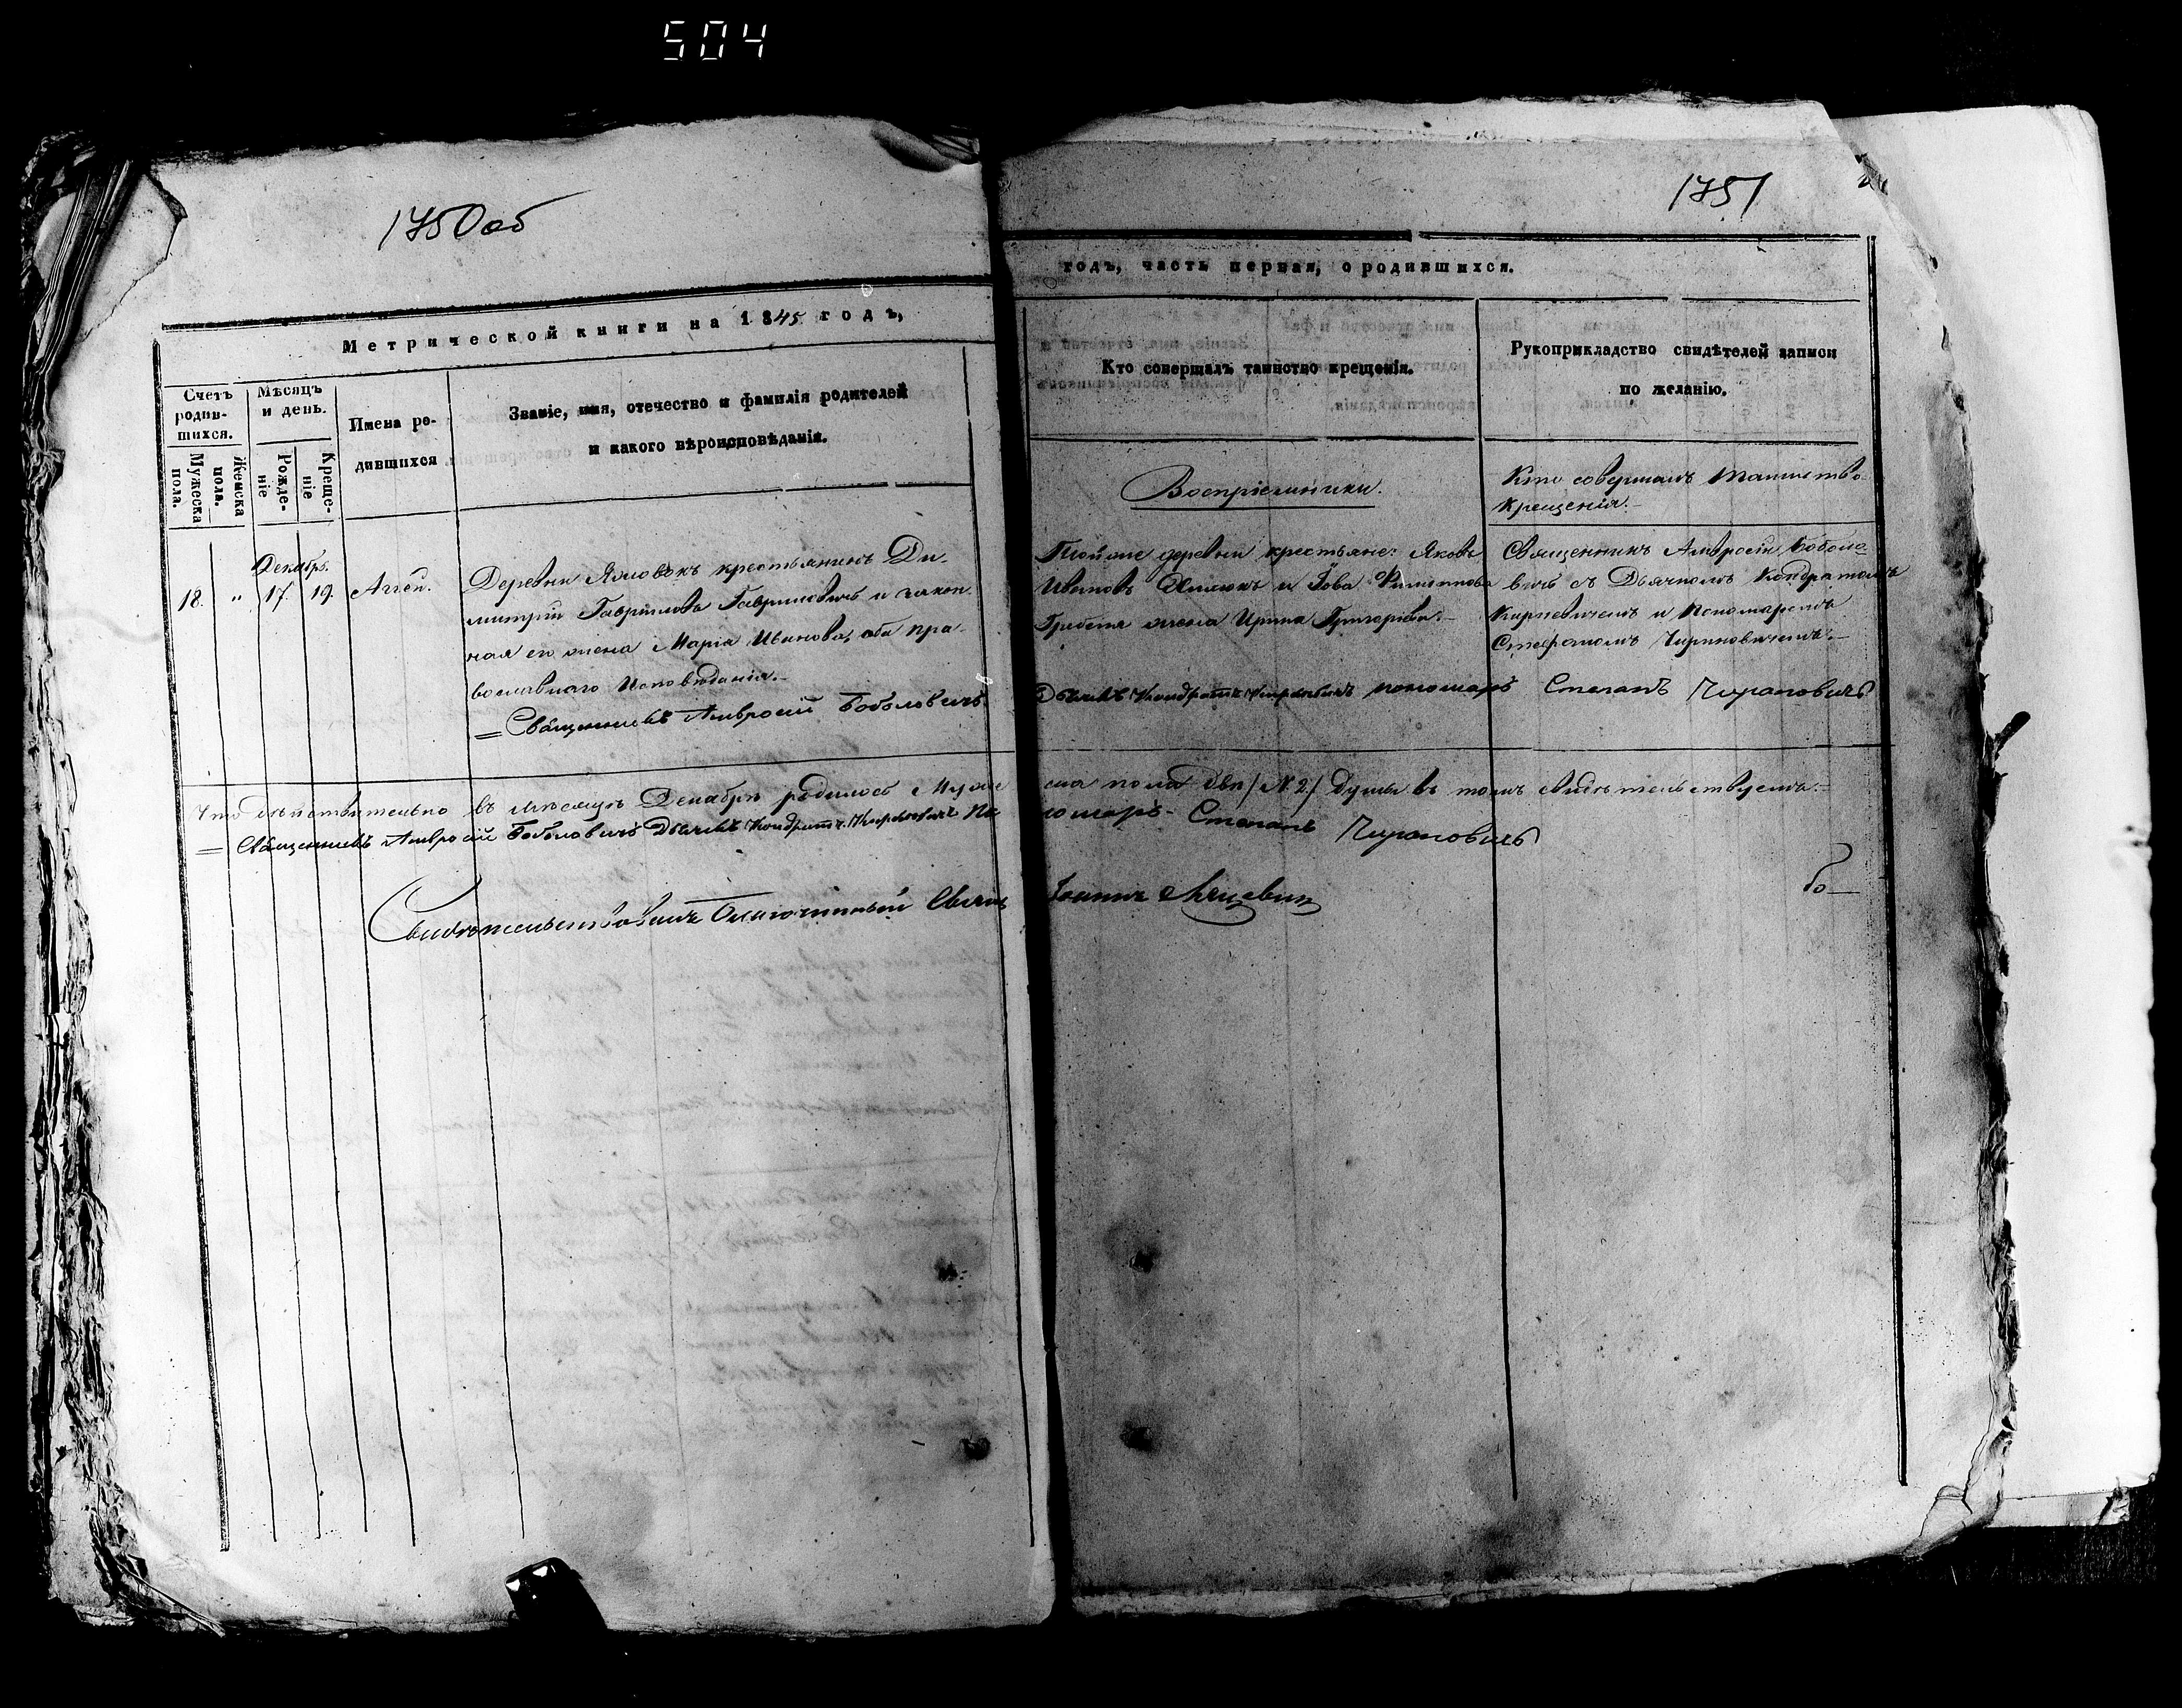 504
1750об
1751
Метрической книги на 1845 годъ,
годъ, часть первая, о родившихся.
Счетъ родив-шихся.
Мужеска пола.
Женска пола.
Мѣсяцъ и день.
Рожде-ніе
Креще-ніе
Имена ро-
дившихся
Званіе, имя, отечество и фамилія родителей
и какого вѣроисповѣданія.
Кто совершалъ таинство крещенія.
Рукоприкладство свидѣтелей записи
по желанію.
Воспріемники.
Кто совершалъ таинство
Крещенія.-
Декабрь.
18. " 17. 19. Аггей.
Деревни крестьянинъ Ди-
митрій Гавріиловъ Гавриловичъ и закон
ная его жена Марія Иванова, оба пра-
вославнаго Исповѣданія.-
= Священникъ Амвросій Боболовичъ
Тойже деревни крестьяне: Яковъ
Ивановъ и Іова Филиппова
Гребеня жена Ирина Григорьева.-
Дьячекъ Кондратъ Киркевичъ пономаръ Степанъ
Священникъ Амвросій Боболо-
вичъ съ Дьячкомъ Кондратомъ
Киркевичемъ и Пономаремъ
Стефаномъ
Что дѣйствительно въ мѣсяцѣ Декабрѣ родилось Муже
ска пола двѣ /N. 2/ души въ томъ свидѣтельствуемъ:-
= Священникъ Амвросій Боболовичъ Дьячекъ Кондратъ Киркевичъ По
номаръ- Степанъ
Свидѣтельствовалъ Благочинный Свящ
Іоаннъ